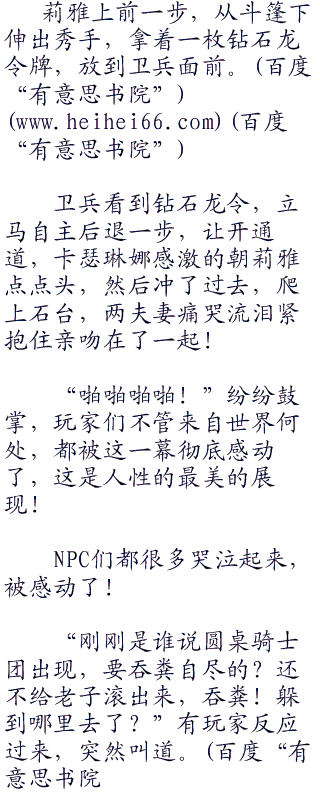 莉雅上前一步，从斗篷下
伸出秀手，拿着一枚钻石龙
令牌，放到卫兵面前。(百度
“有意思书院”)
(www.heihei66.com)(百度
“有意思书院”)
卫兵看到钻石龙令，立
马自主后退一步，让开通
道，卡瑟琳娜感激的朝莉雅
点点头，然后冲了过去，爬
上石台，两夫妻痛哭流泪紧
抱住亲吻在了一起！
“啪啪啪啪！”纷纷鼓
掌，玩家们不管来自世界何
处，都被这一幕彻底感动
了，这是人性的最美的展
现！
NPC们都很多哭泣起来，
被感动了！
“刚刚是谁说圆桌骑士
团出现，要吞粪自尽的？还
不给老子滚出来，吞粪！躲
到哪里去了？”有玩家反应
过来，突然叫道。(百度“有
意思书院